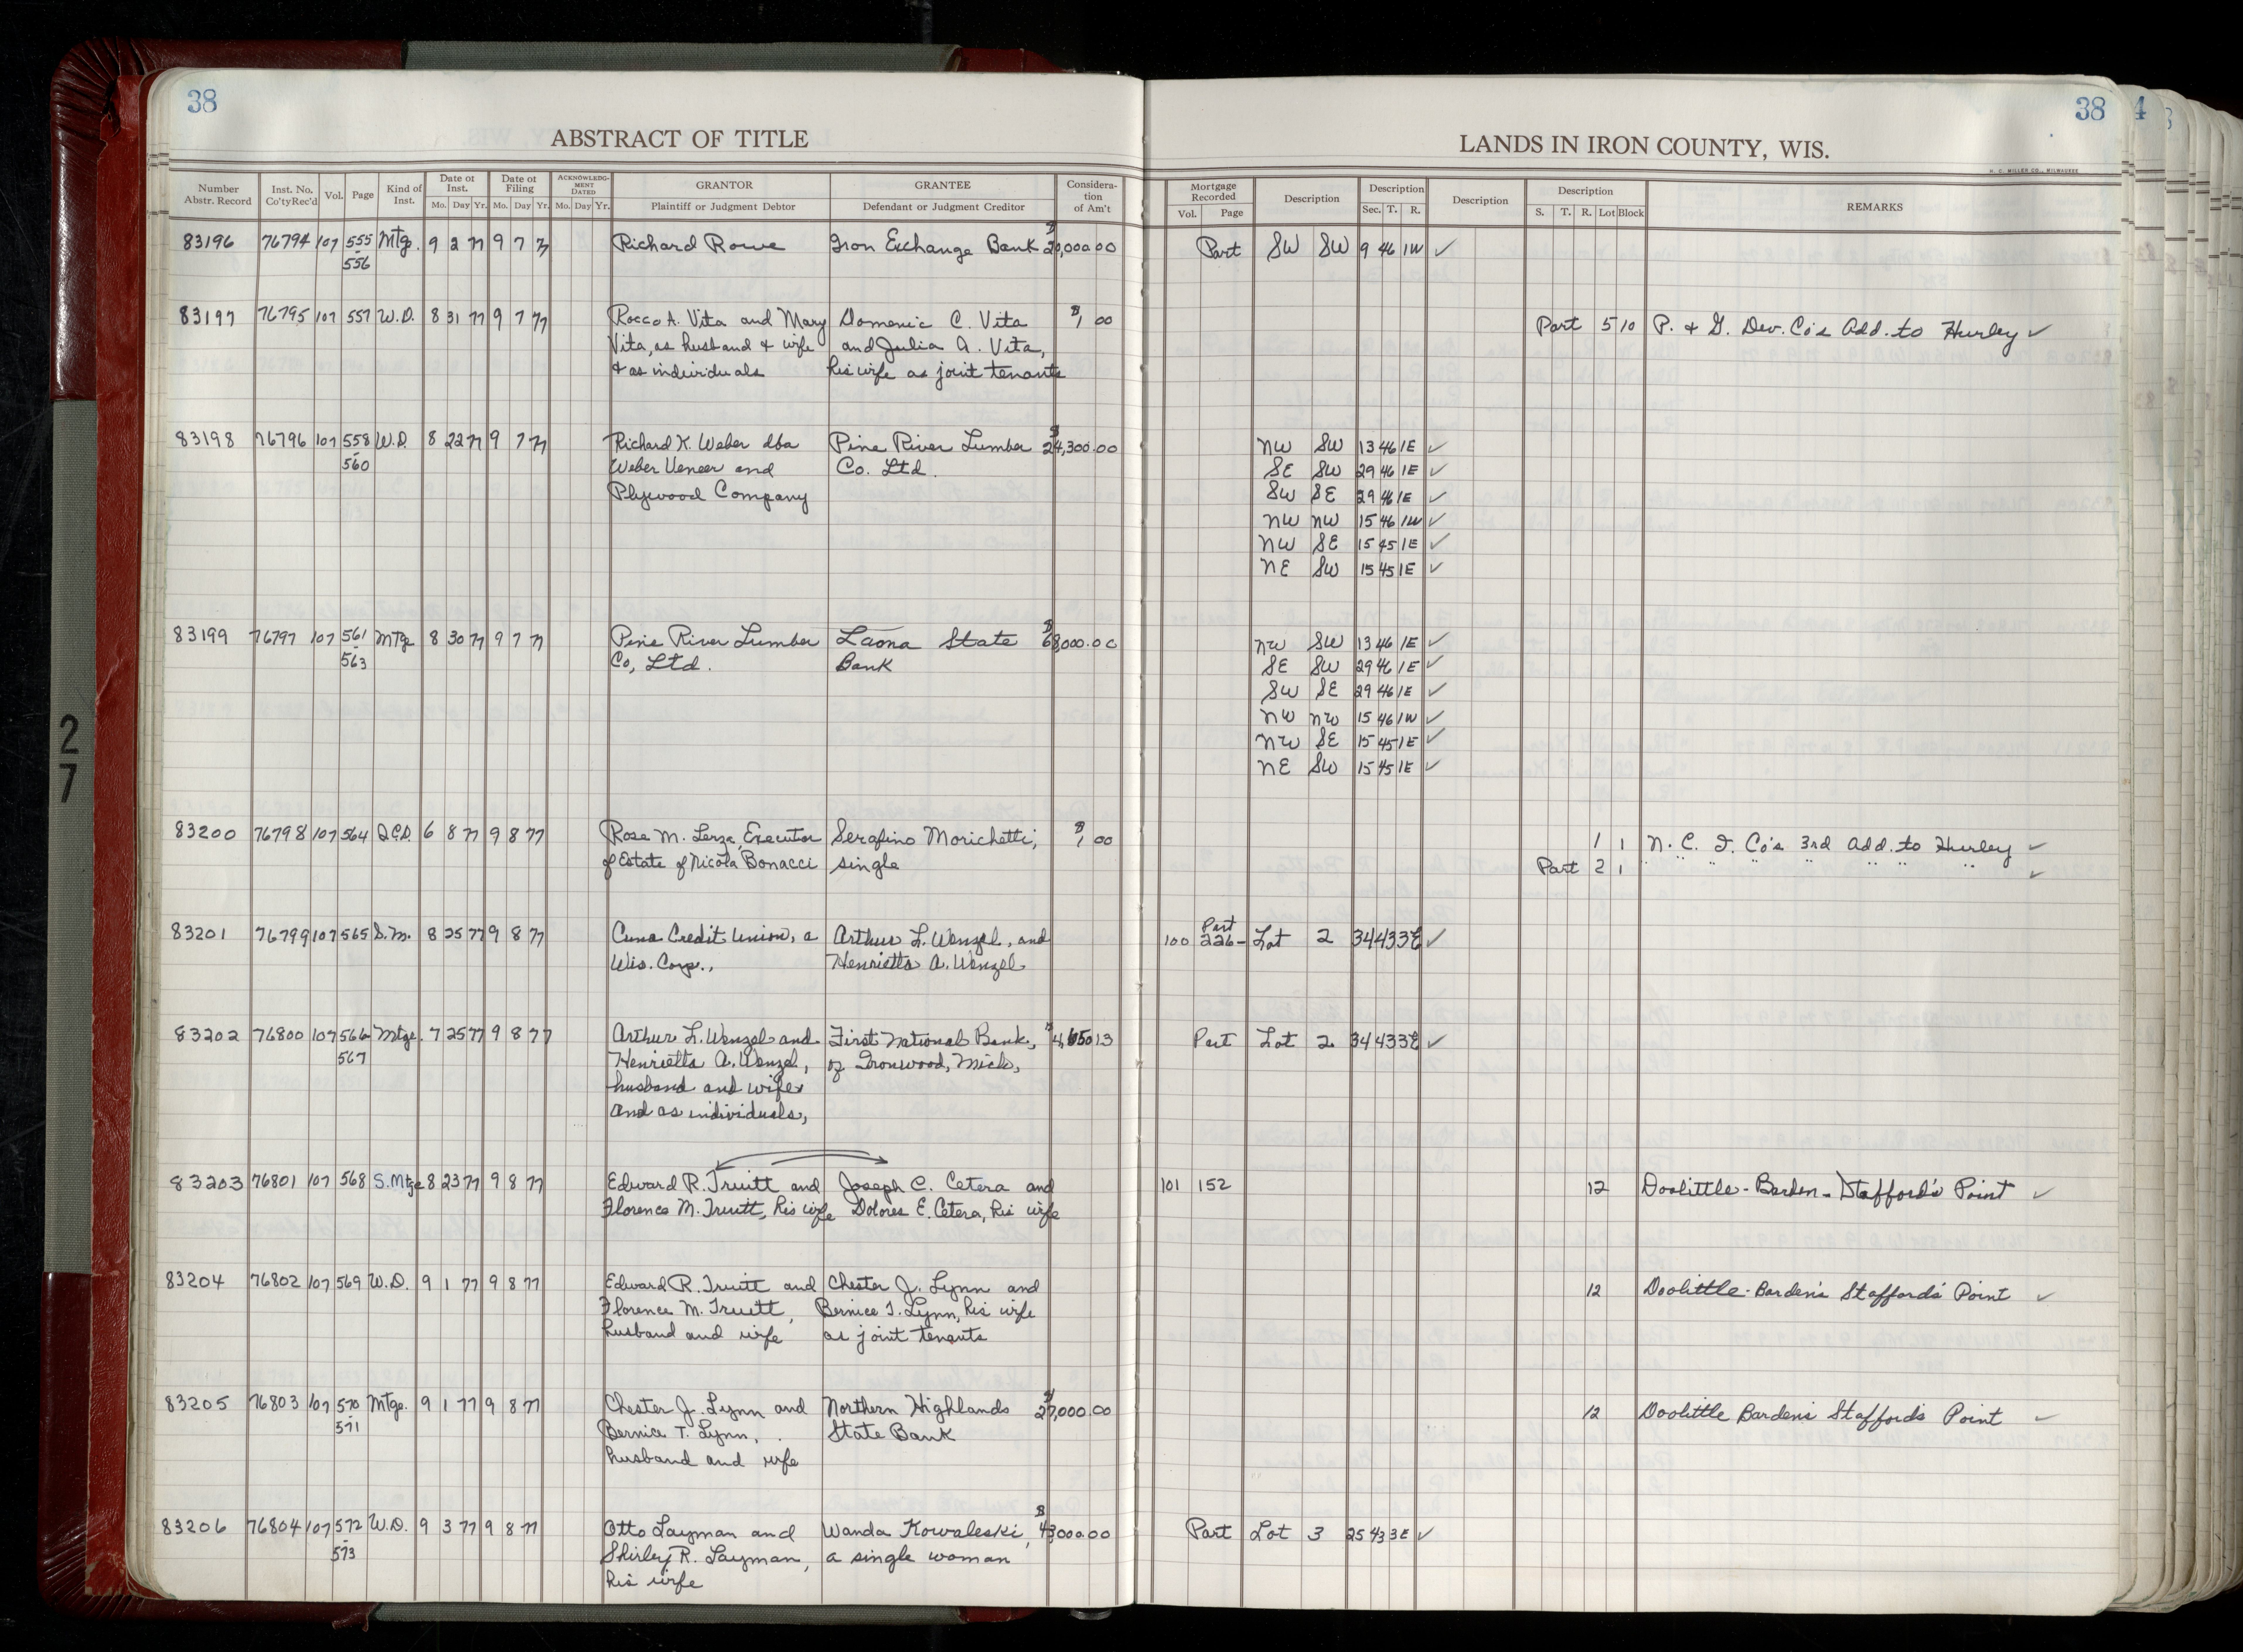 38
38
4
ABSTRACT OF TITLE
LANDS IN IRON COUNTY, WIS.
H. C. MILLER CO., MILWAUKEE
Number Abstr. Record
Inst. No. Co'ty Rec'd
Vol.
Page
Kind of Inst.
Date of Inst. Mo. Day Yr.
Date of Filing Mo. Day Yr.
ACKNOWLEDGMENT DATED Mo. Day Yr.
GRANTOR Plaintiff or Judgment Debtor
GRANTEE Defendant or Judgment Creditor
Consideration of Am't
Mortgage Recorded Vol. Page
Description
Description Sec. T. R.
Description
Description S. T. R. Lot Block
REMARKS
83196 76794 107 555 Mtge. 9 2 77 9 7 77 Richard Rowe Iron Exchange Bank $20,000.00 Part SW SW 9 46 1W ✓
- 556
83197 76795 107 557 W.D. 8 31 77 9 7 77 Rocco A. Vita and Mary Domenic C. Vita $1 00 Part 5 10 P. & G. Dev. Co's Add. to Hurley ✓
Vita, as husband & wife and Julia A. Vita,
& as individuals his wife as joint tenants
83198 76796 107 558 W.D. 8 22 77 9 7 77 Richard K. Weber dba Pine River Lumber $24,300.00 NW SW 13 46 1E ✓
- 560 Weber Veneer and Co. Ltd. SE SW 29 46 1E ✓
Plywood Company SW SE 29 46 1E ✓
NW NW 15 46 1W ✓
NW SE 15 45 1E ✓
NE SW 15 45 1E ✓
83199 76797 107 561 Mtge 8 30 77 9 7 77 Pine River Lumber Laona State $68,000.00 NW SW 13 46 1E ✓
- 563 Co, Ltd. Bank SE SW 29 46 1E ✓
SW SE 29 46 1E ✓
NW NW 15 46 1W ✓
NW SE 15 45 1E ✓
NE SW 15 45 1E ✓
83200 76798 107 564 Q.C.D. 6 8 77 9 8 77 Rose M. Lerza, Executor Serafino Morichetti, $1 00 1 1 N. C. I. Co's 3rd Add. to Hurley ✓
of Estate of Nicola Bonacci single Part 2 1 " " " " " " " " ✓
83201 76799 107 565 S.M. 8 25 77 9 8 77 Cuna Credit Union, a Arthur L. Wenzel, and 100 Part 226- Lot 2 34 43 3E ✓
Wis. Corp., Henrietta A. Wenzel
83202 76800 107 566- Mtge. 7 25 77 9 8 77 Arthur L. Wenzel and First National Bank, Part Lot 2 34 43 3E ✓
567 Henrietta A. Wenzel, of Ironwood, Mich,
husband and wife
and as individuals,
83203 76801 107 568 S.Mtge 8 23 77 9 8 77 Edward R. Truitt and Joseph C. Cetera and 101 152 12 Doolittle-Barden-Stafford's Point ✓
Florence M. Truitt, his wife Dolores E. Cetera, his wife
83204 76802 107 569 W.D. 9 1 77 9 8 77 Edward R. Truitt and Chester J. Lynn and 12 Doolittle-Barden's Stafford's Point ✓
Florence M. Truitt, Bernice T. Lynn, his wife
husband and wife as joint tenants
83205 76803 107 570 Mtge. 9 1 77 9 8 77 Chester J. Lynn and Northern Highlands $27,000.00 12 Doolittle Barden's Stafford's Point ✓
- 571 Bernice T. Lynn, State Bank
husband and wife
83206 76804 107 572 W.D. 9 3 77 9 8 77 Otto Layman and Wanda Kowaleski, $43,000.00 Part Lot 3 25 43 3E ✓
- 573 Shirley R. Layman, a single woman
his wife
27